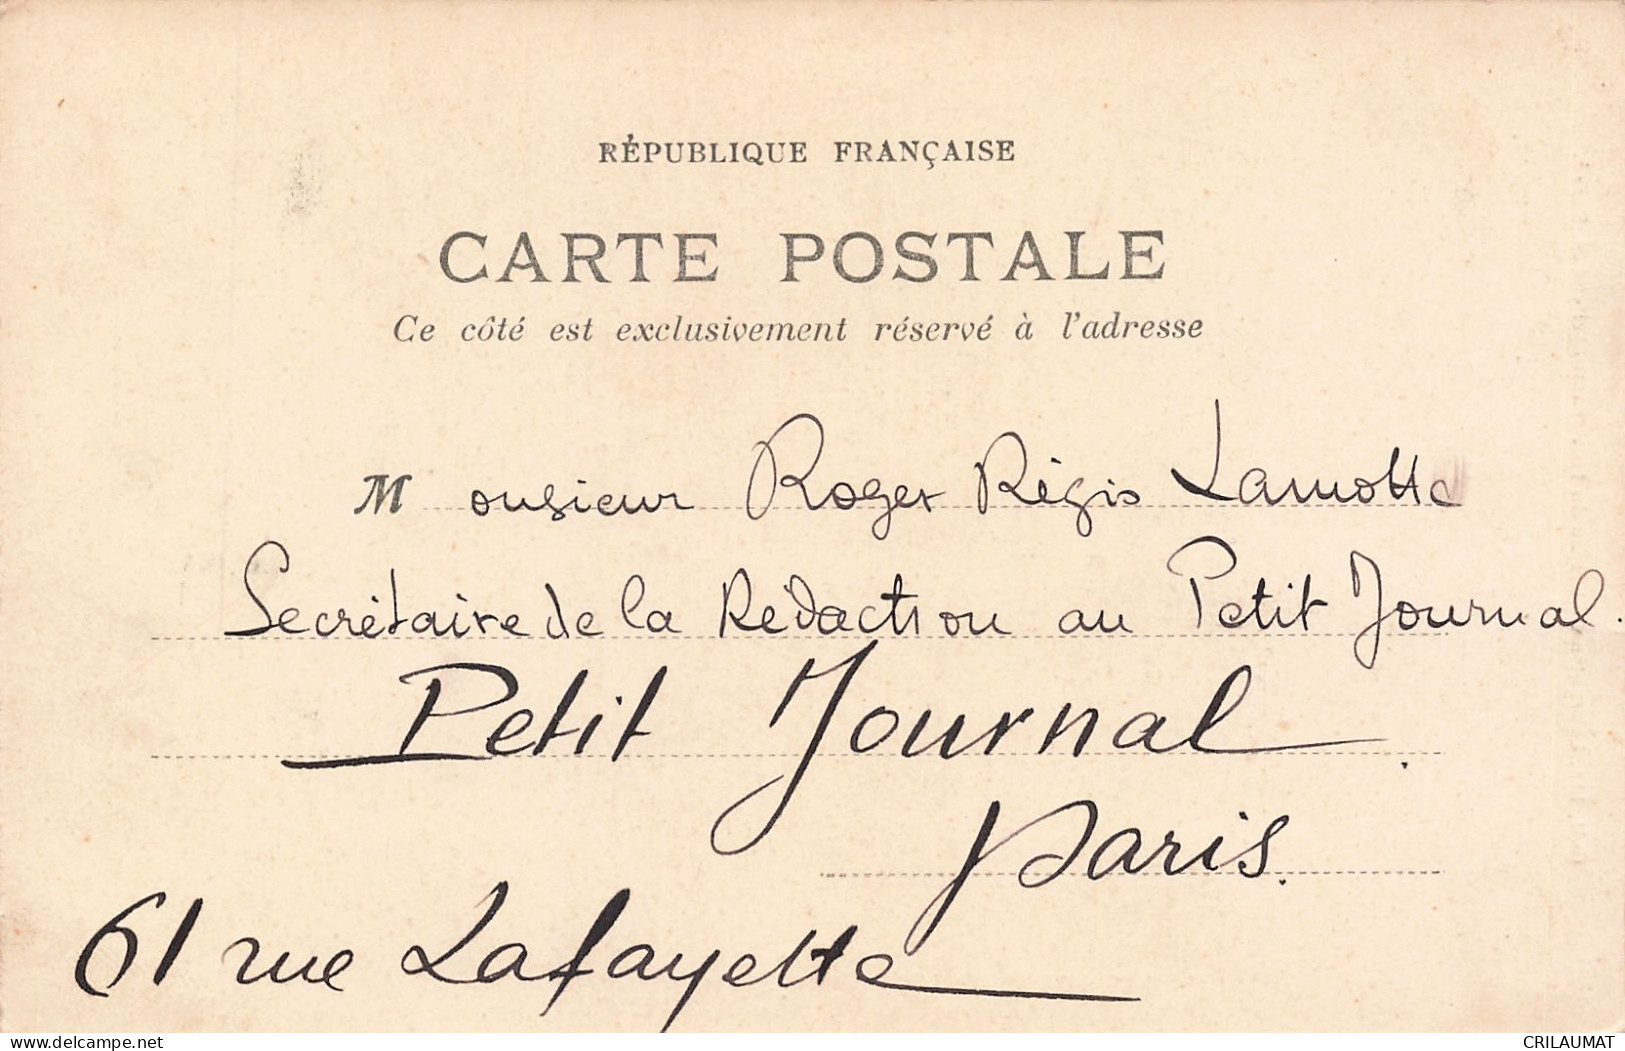 RÉPUBLIQUE FRANÇAISE
CARTE POSTALE
Ce côté est exclusivement réservé à l'adresse
Monsieur Roger Régis Lamotte
Secrétaire de la Rédaction au Petit Journal.
Petit Journal.
Paris.
61 rue Lafayette
delcampe.net
CRILAUMAT